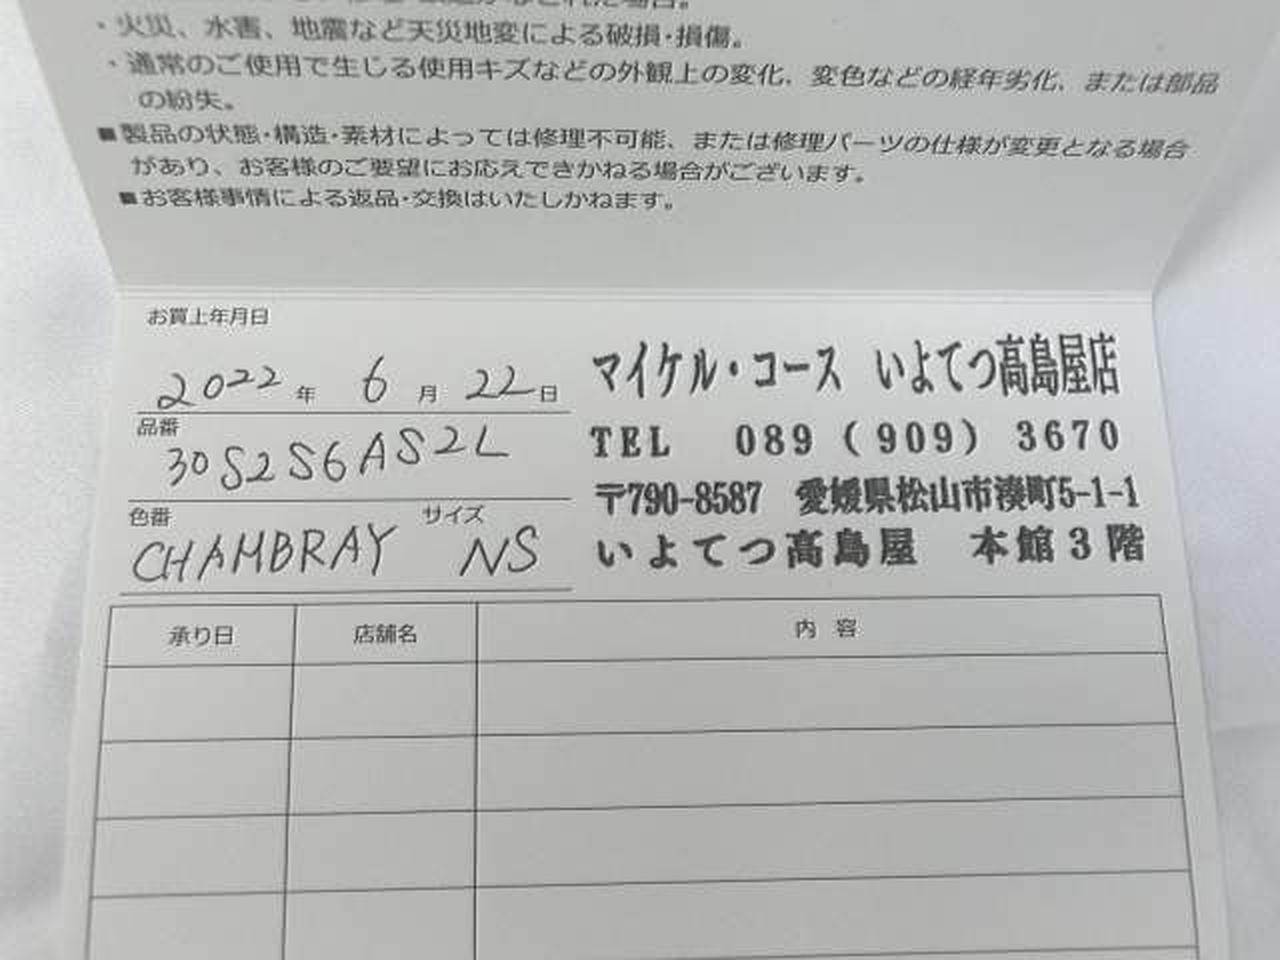 ・火災、水害、地震など天災地変による破損・損傷。
・通常のご使用で生じる使用キズなどの外観上の変化、変色などの経年劣化、または部品
の紛失。
■製品の状態・構造・素材によっては修理不可能、または修理パーツの仕様が変更となる場合
があり、お客様のご要望にお応えできかねる場合がございます。
■お客様事情による返品・交換はいたしかねます。
お買上年月日
2022 年 6 月 22 日
品番
30S2S6AS2L
色番 サイズ
CHAMBRAY NS
マイケル・コース いよてつ髙島屋店
TEL 089(909)3670
〒790-8587 愛媛県松山市湊町5-1-1
いよてつ髙島屋 本館3階
承り日 店舗名 内容